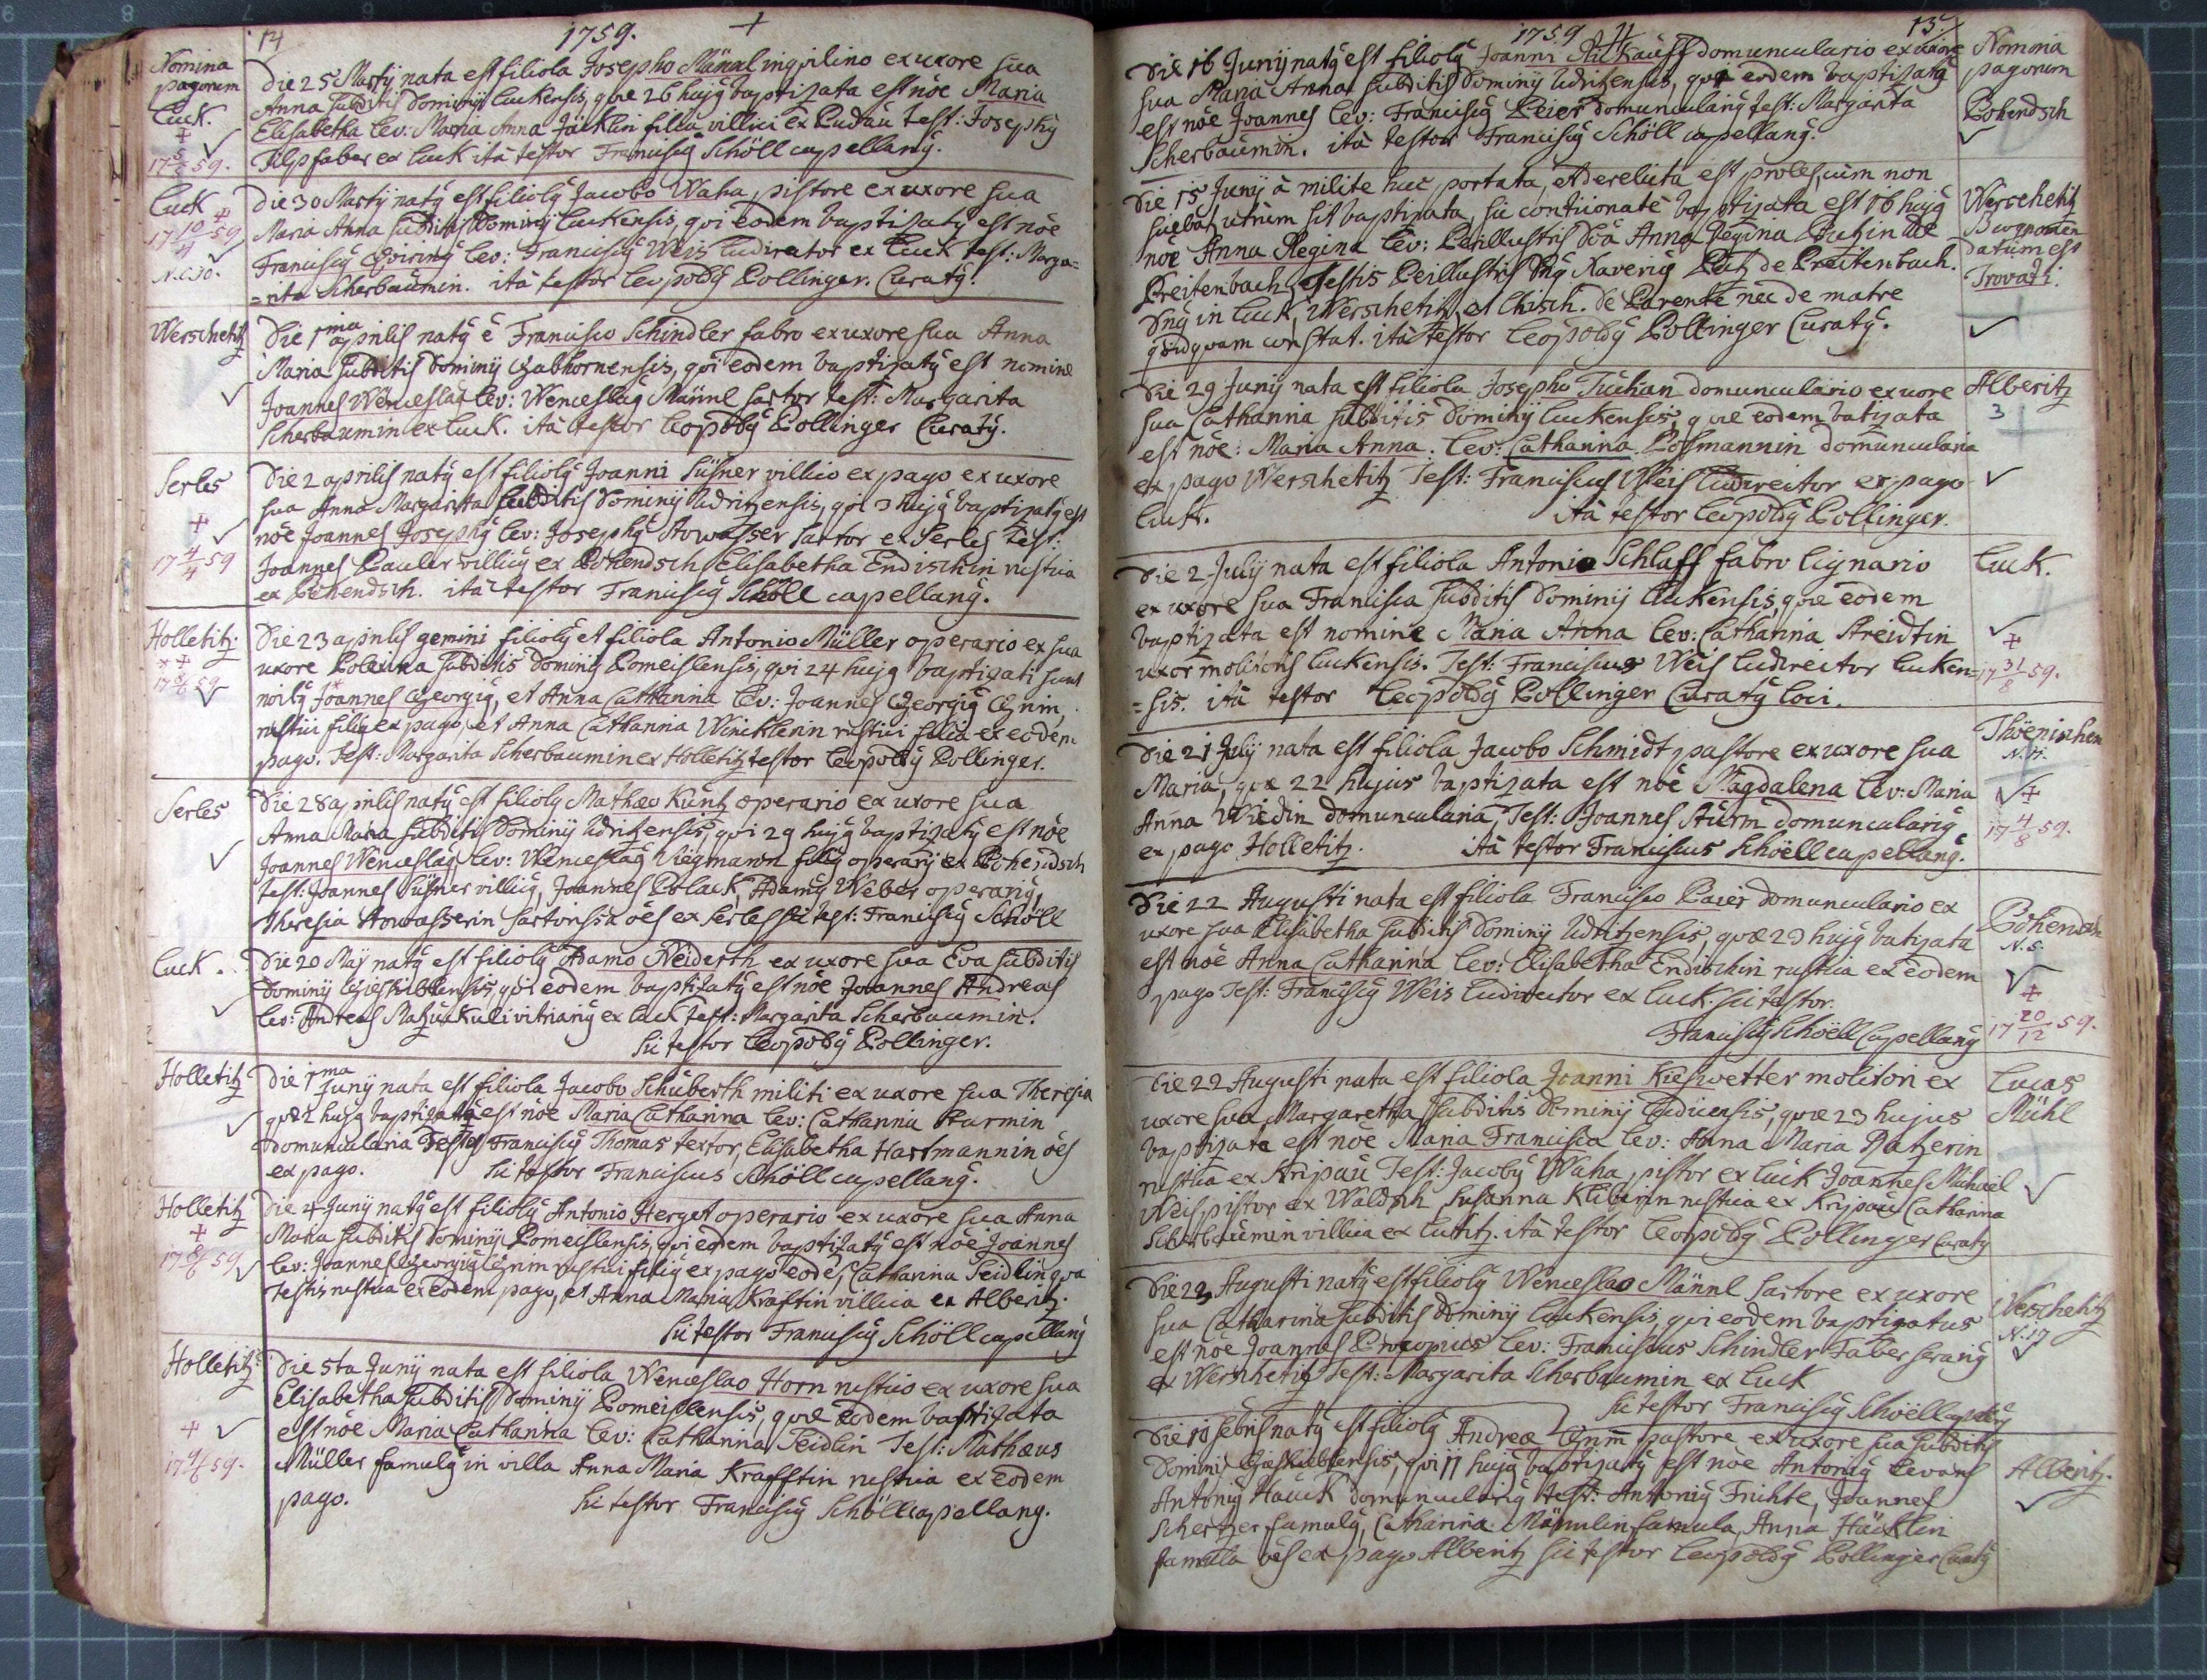 14
1759.
Nomina
pagorum
Luck.
17 5/5 59.
Die 25 Martij nata est filiola Josepho Männl inqvilino ex uxore sua
Anna subditis Dominij Luckensis, qvae 26 hujg baptizata est nõe Maria
Elisabetha lev: Maria Anna Jäcklin filia villici ex Pudau test: Josephg
Ulp faber ex Luck ità testor Franciscg Schöll capellang.
Luck
17 10/4 59
N.C. 30.
Die 30 Martij natg est filiolg Jacobo Waha pistore ex uxore sua
Maria Anna subditis Dominij Luckensis, qvi eodem baptizatg est nõe
Franciscg Qviring lev: Franciscg Weis ludirector ex Luck test: Marga=
=rita Scherbaumin. ità testor Leopoldg Pollinger. Curatg.
Werschetitz
Die 1ma aprilis natg ẽ Francisco Schindler fabro ex uxore sua Anna
Maria subditis Dominij Gabhornensis, qvi eodem baptizatg est nomine
Joannes Wenceslag lev: Wenceslag Männl sartor test: Margarita
Scherbaumin ex Luck. ità testor Leopoldg Pollinger Curatg.
Serles
17 4/4 59
Die 2 aprilis natg est filiolg Joanni Süsner villico ex pago ex uxore
sua Anna Margarita subditis Dominij Udritzensis, qvi 3 hujg baptizatg est
nõe Joannes Josephg lev: Josephg Stowasser sartor ex Serles Test:
Joannes Pauler villicg ex Pohendsch Elisabetha Endischin rustica
ex Pohendsch. ità testor Franciscg Schöll capellang.
Holletitz
17 5/6 59
Die 23 aprilis gemini filiolg et filiola Antonio Müller operario ex sua
uxore Polexina subditis Dominij Pomeislensis, qvi 24 hujg baptizati sunt
noibg Joannes Georgig, et Anna Catharina lev: Joannes Georgig Grim
rustici filig ex pago, et Anna Catharina Wincklerin rustici filia ex eodem
pago. Test: Margarita Scherbaumin ex Holletitz testor Leopoldg Pollinger.
Serles
Die 28 aprilis natg est filiolg Mathaeo Küntz operario ex uxore sua
Anna Maria subditis Dominij Udritzensis, qvi 29 hujg baptizatg est nõe
Joannes Wenceslag lev: Wenceslag Viegmann filig operarij ex Pohendsch
test: Joannes Süsner villicg, Joannes Polack, Adamg Weber operarig,
Theresia Stowasserin sartorissa oẽs ex Serles sic test: Franciscg Schöll
Luck.
Die 20 Maij natg est filiolg Adamo Neiderth ex uxore sua Eva subditis
Dominij Gieskiblensis, qvi eodem baptizatg est nõe Joannes Andreas
lev: Andreas vitriarig ex Luck test: Margarita Scherbaumin.
Sic testor Leopoldg Pollinger.
Holletitz
Die 1ma Junij nata est filiola Jacobo Schuberth militi ex uxore sua Theresia
qvae 2 hujg baptizata est nõe Maria Catharina lev: Catharina Sturmin
domuncularia Testes Franciscg Thomas textor, Elisabetha Hartmannin oẽs
ex pago. Sic testor Franciscus Schöll capellang.
Holletitz
17 8/6 59
Die 4 Junij natg est filiolg Antonio Herget operario ex uxore sua Anna
Maria subditis Dominij Pomeislensis, qvi eodem baptizatg est nõe Joannes
lev: Joannes Georgig Grim rustici filig ex pago eodẽ, Catharina Seidlin qva
testis rustica ex eodem pago, et Anna Maria Kraftin villica ex Alberitz.
Sic testor Franciscg Schöll capellang
Holletitz
17 9/6 59.
Die 5ta Junij nata est filiola Wenceslao Horn rustico ex uxore sua
Elisabetha subditis Dominij Pomeislensis, qvae eodem baptizata
est nõe Maria Catharina lev: Catharina Seidlin Test: Mathaeus
Müller famulg in villa Anna Maria Krafftin rustica ex eodem
pago. Sic testor Franciscg Schöll capellang.
1759
15
Nomina
pagorum
Pohendsch
Die 16 Junij natg est filiolg Joanni domunculario ex uxore
sua Maria Anna subditis Dominij Udritzensis, qvi eodem baptizatg
est nõe Joannes lev: Franciscg Peier domuncularig test: Margarita
Scherbaumin. ità testor Franciscg Schöll capellang.
Werschetitz
datum est
Die 15 Junij à milite huc portata, et derelicta est proles, cum non
sciebat utrum sit baptizata, sic conditionatè baptizata est 16 hujg
nõe Anna Regina lev: Perillustris Dõa Anna Regina Putzin de
Breitenbach, Testis Perillustris Dng Xaverig Putz de Breitenbach.
Dng in Luck, Werschetitz, et Chisch. de Parente nec de matre
qvidqvam constat. ità testor Leopoldg Pollinger Curatg.
Alberitz
3
Die 29 Junij nata est filiola Josepho Tuchan domunculario ex uxore
sua Catharina subditis Dominij Luckensis, qvae eodem batizata
est nõe: Maria Anna. lev: Catharina Posmannin domuncularia
ex pago Werschetitz Test: Franciscus Weis ludirector ex pago
Luck. ità testor Leopoldg Pollinger.
Luck.
17 31/8 59.
Die 2 Julij nata est filiola Antonio Schlaff fabro lignario
ex uxore sua Francisca subditis Dominij Luckensis, qvae eodem
baptizata est nomine Maria Anna lev: Catharina Streidtin
uxor molitoris Luckensis. Test: Franciscus Weis ludirector Lucken=
=sis. ità testor Leopoldg Pollinger Curatg loci.
Thöenischen
N. 11.
17 4/8 59.
Die 21 Julij nata est filiola Jacobo Schmidt pastore ex uxore sua
Maria, qvae 22 hujus baptizata est nõe Magdalena lev: Maria
Anna Widin domuncularia, Test: Joannes Sturm domuncularig
ex pago Holletitz. ità testor Franciscus Schöell capellang.
Pohendsch
N. 5.
17 20/12 59.
Die 22 Augusti nata est filiola Francisco Paier domunculario ex
uxore sua Elisabetha subditis Dominij Udritzensis, qvae 23 hujg batizata
est nõe Anna Catharina lev: Elisabetha Endischin rustica ex eodem
pago Test: Franciscg Weis ludirector ex Luck. sic testor.
Franciscg Schöell Capellang
Lucas
Mühl
Die 22 Augusti nata est filiola Joanni Kieswetter molitori ex
uxore sua Margaretha subditis Dominij Luditensis, qvae 23 hujus
baptizata est nõe Maria Francisca lev: Anna Maria Datzerin
rustica ex Kripau Test: Jacobg Waha pistor ex Luck Joannes Michael
Weis pistor ex Waldsch Susanna Kliberin rustica ex Kripau Catharina
Scherbaumin villica ex Lutitz. ità testor Leopoldg Pollinger Curatg
Werschetitz
N. 17
Die 23 Augusti natg est filiolg Wenceslao Männl sartore ex uxore
sua Catharina subditis Dominij Luckensis, qvi eodem baptizatus
est nõe Joannes Procopius lev: Franciscus Schindler Faber
ex Werschetitz Test: Margarita Scherbaumin ex Luck
Sic testor Franciscg Schöell capellang
Alberitz.
Die 10 sebris natg est filiolg Andreae Grim̃ pastore ex uxore sua subditis
Dominij Gieskiblensis, qvi 11 hujg baptizatg est nõe Antonig Levans
Antonig Hauck domuncularig test: Antonig Frichtl, Joannes
Schertzer famulg, Catharina Männlin famula, Anna Häcklin
famula oẽs ex pago Alberitz sic testor Leopoldg Pollinger Curatg